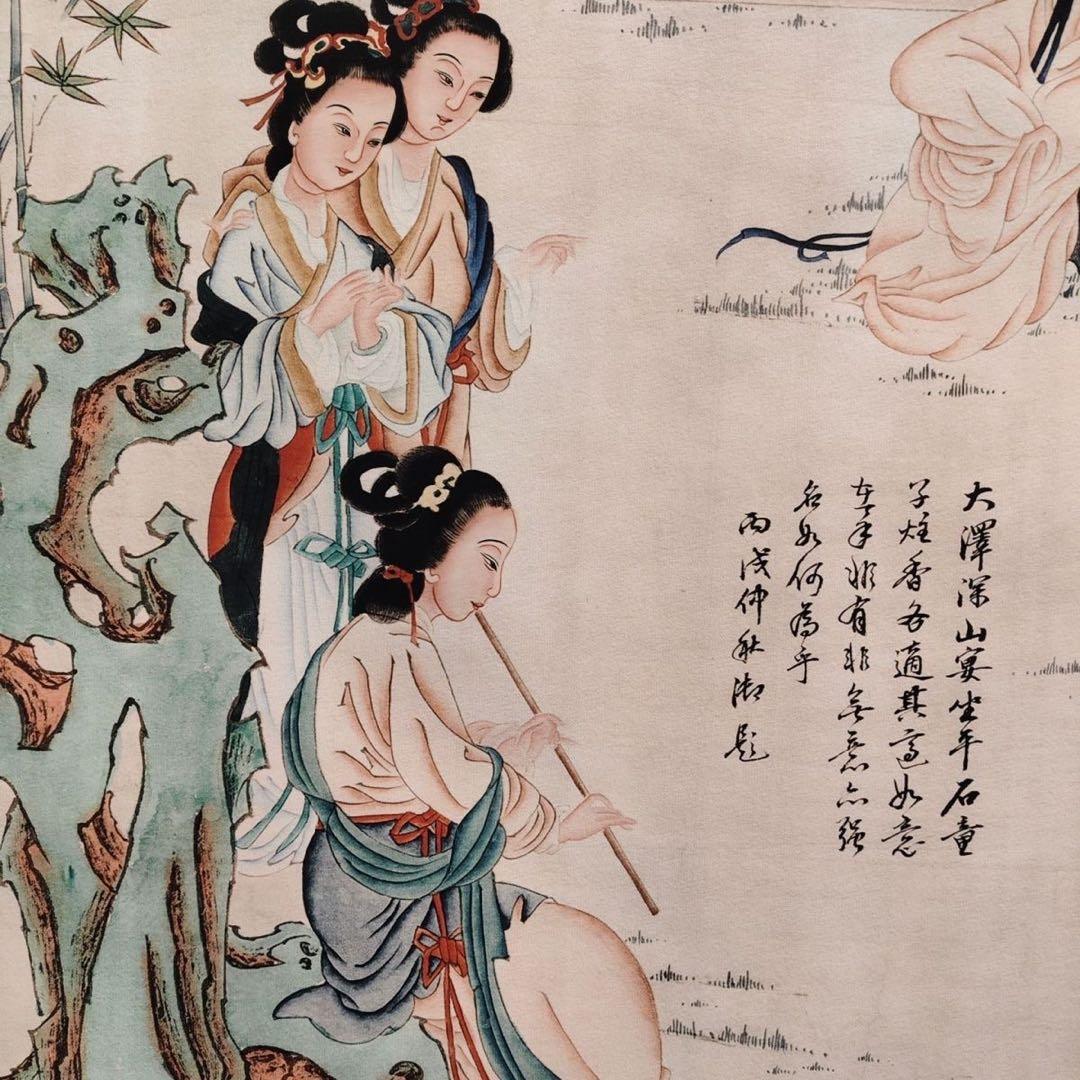 大澤深山宴坐平石童
子炷香各適其適如意
在手非有非無意亦强
名如何為乎
丙戌仲秋御題